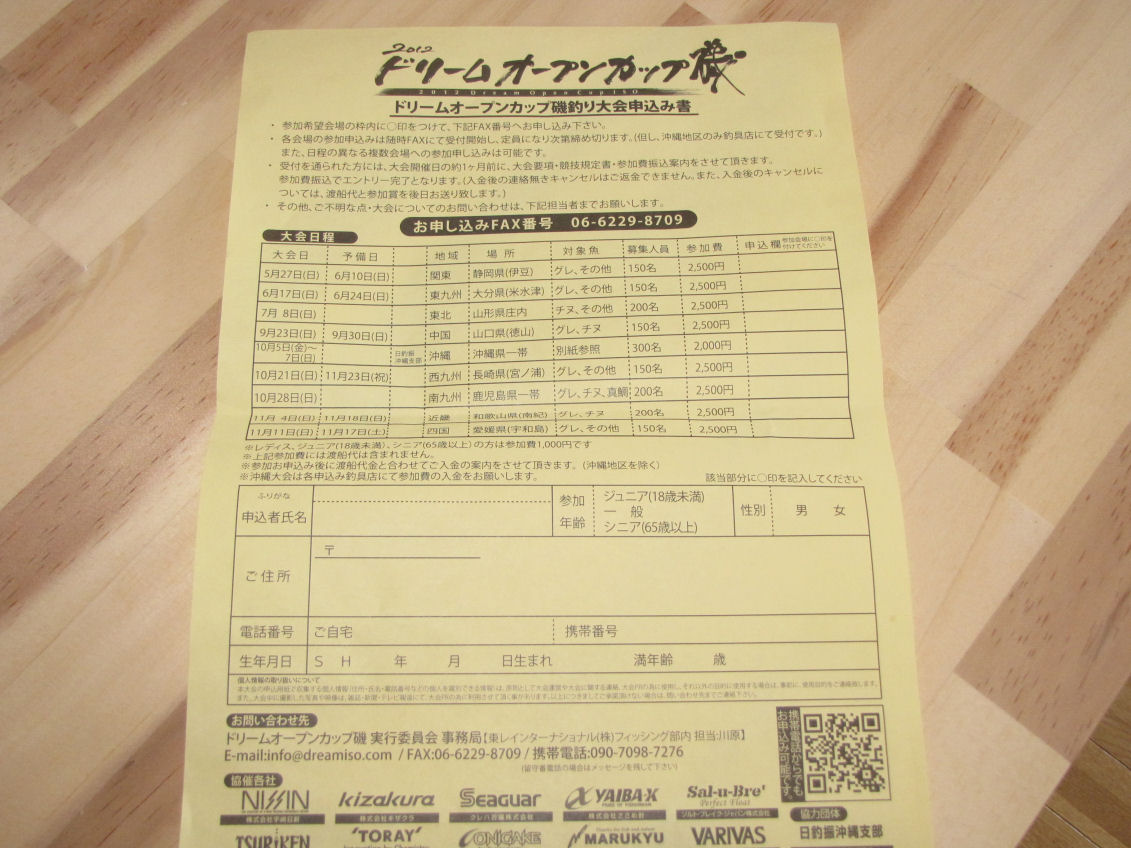 2012
ドリームオープンカップ磯
2012 Dream Open Cup ISO
ドリームオープンカップ磯釣り大会申込み書
・ 参加希望会場の枠内に〇印をつけて、下記FAX番号へお申し込み下さい。
・ 各会場の参加申込みは随時FAXにて受付開始し、定員になり次第締め切ります。(但し、沖縄地区のみ釣具店にて受付です。)
また、日程の異なる複数会場への参加申し込みは可能です。
・ 受付を通られた方には、大会開催日の約1ヶ月前に、大会要項・競技規定書・参加費振込案内をさせて頂きます。
参加費振込でエントリー完了となります。(入金後の連絡無きキャンセルはご返金できません。また、入金後のキャンセルに
ついては、渡船代と参加賞を後日お送り致します。)
・ その他、ご不明な点・大会についてのお問い合わせは、下記担当者までお願いします。
お申し込みFAX番号 06-6229-8709
大会日程
大会日 予備日 地域 場所 対象魚 募集人員 参加費 申込欄 参加会場に〇印を付けてください
5月27日(日) 6月10日(日) 関東 静岡県(伊豆) グレ、その他 150名 2,500円
6月17日(日) 6月24日(日) 東九州 大分県(米水津) グレ、その他 150名 2,500円
7月 8日(日) 東北 山形県庄内 チヌ、その他 200名 2,500円
9月23日(日) 9月30日(日) 中国 山口県(徳山) グレ、チヌ 150名 2,500円
10月5日(金)～7日(日) 日釣振沖縄支部 沖縄 沖縄県一帯 別紙参照 300名 2,000円
10月21日(日) 11月23日(祝) 西九州 長崎県(宮ノ浦) グレ、その他 150名 2,500円
10月28日(日) 南九州 鹿児島県一帯 グレ、チヌ、真鯛 200名 2,500円
11月 4日(日) 11月18日(日) 近畿 和歌山県(南紀) グレ、チヌ 200名 2,500円
11月11日(日) 11月17日(土) 四国 愛媛県(宇和島) グレ、その他 150名 2,500円
※レディス、ジュニア(18歳未満)、シニア(65歳以上)の方は参加費1,000円です
※上記参加費には渡船代は含まれません。
※参加お申込み後に渡船代金と合わせてご入金の案内をさせて頂きます。(沖縄地区を除く)
※沖縄大会は各申込み釣具店にて参加費の入金をお願いします。
該当部分に〇印を記入してください
ふりがな
申込者氏名
参加年齢
ジュニア(18歳未満)
一 般
シニア(65歳以上)
性別 男 女
ご住所 〒
電話番号 ご自宅 携帯番号
生年月日 S H 年 月 日生まれ 満年齢 歳
個人情報の取り扱いについて
本大会の申込用紙で収集する個人情報(住所・氏名・電話番号などの個人を識別できる情報)は、原則として大会運営や大会に関する連絡、大会PRの為に使用し、それ以外の目的に使用する場合は、事前に、使用目的をご連絡致します。
また、大会中に撮影した写真や映像は、雑誌・新聞・テレビ報道にて、大会PRの為に利用させて頂く事があります。以上につきましてご承諾頂けない場合は、問い合わせ先までご連絡下さい。
お問い合わせ先
ドリームオープンカップ磯 実行委員会 事務局【東レインターナショナル(株)フィッシング部内 担当:川原】
E-mail:info@dreamiso.com / FAX:06-6229-8709 / 携帯電話:090-7098-7276
(留守番電話の場合はメッセージを残して下さい)
携帯電話からでもお申込み可能です。
協催各社
NISSIN kizakura Seaguar YAIBA-K Sal-u-Bre'
Perfect Float
株式会社宇崎日新 株式会社キザクラ クレハ合繊株式会社 ソルト・ブレイク・ジャパン株式会社
TSURIKEN 'TORAY' ONIGAKE MARUKYU VARIVAS
協力団体
日釣振沖縄支部